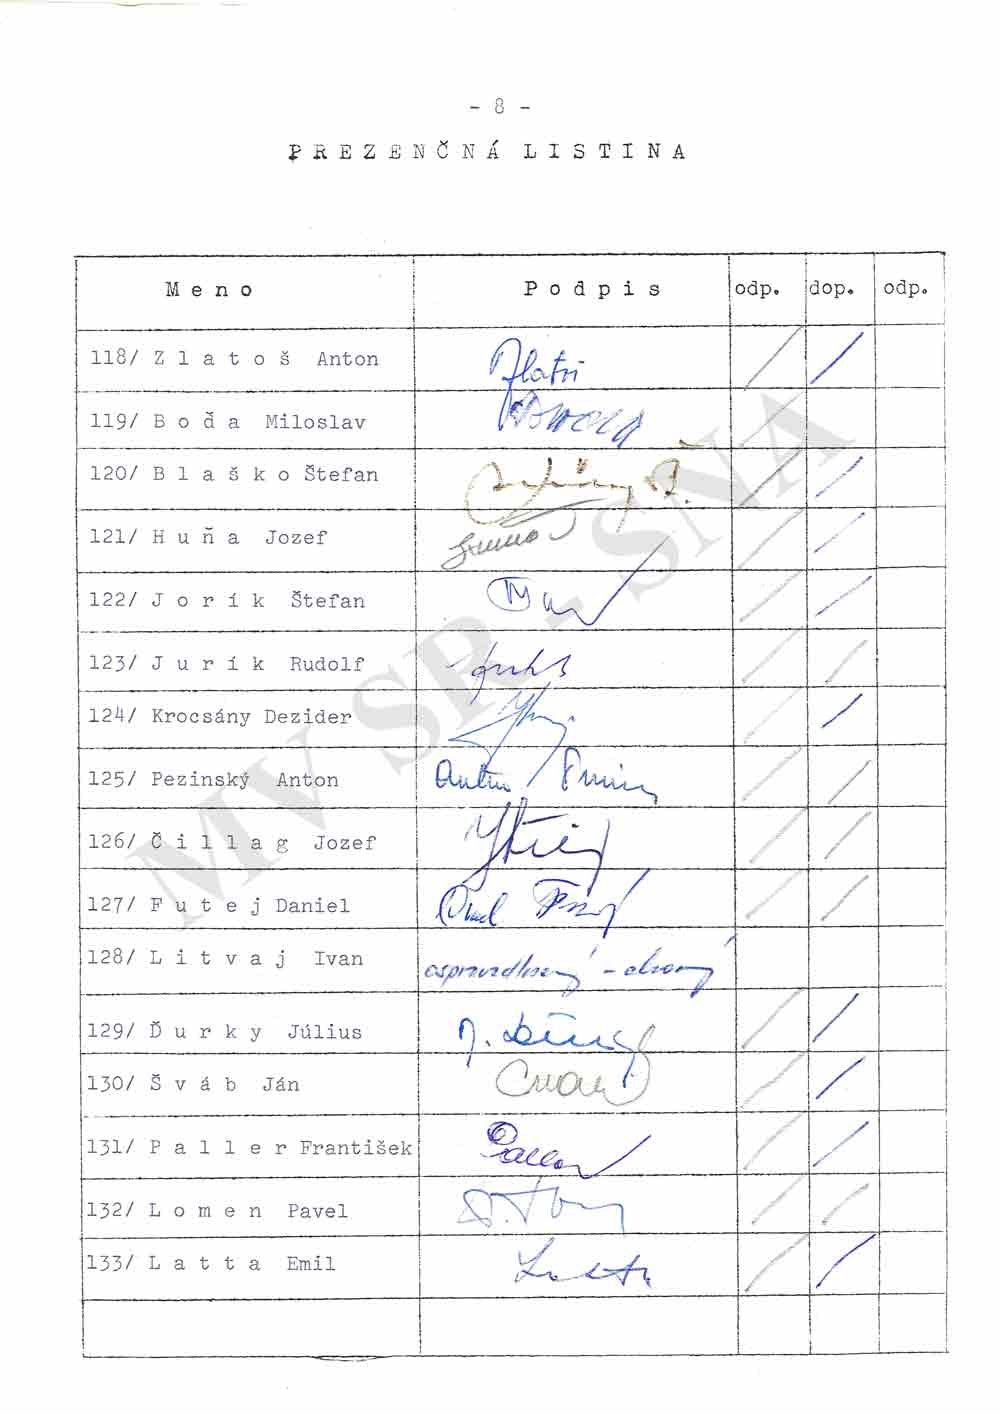 - 8 -
PREZENČNÁ LISTINA
Meno Podpis odp. dop. odp.
118/ Zlatoš Anton
119/ Boďa Miloslav
120/ Blaško Štefan
121/ Huňa Jozef
122/ Jorík Štefan
123/ Jurík Rudolf
124/ Krocsány Dezider
125/ Pezinský Anton
126/ Čillag Jozef
127/ Futej Daniel
128/ Litvaj Ivan ospravedlnený
129/ Ďurky Július
130/ Šváb Ján
131/ Paller František
132/ Lomen Pavel
133/ Latta Emil
MV SR - SNA